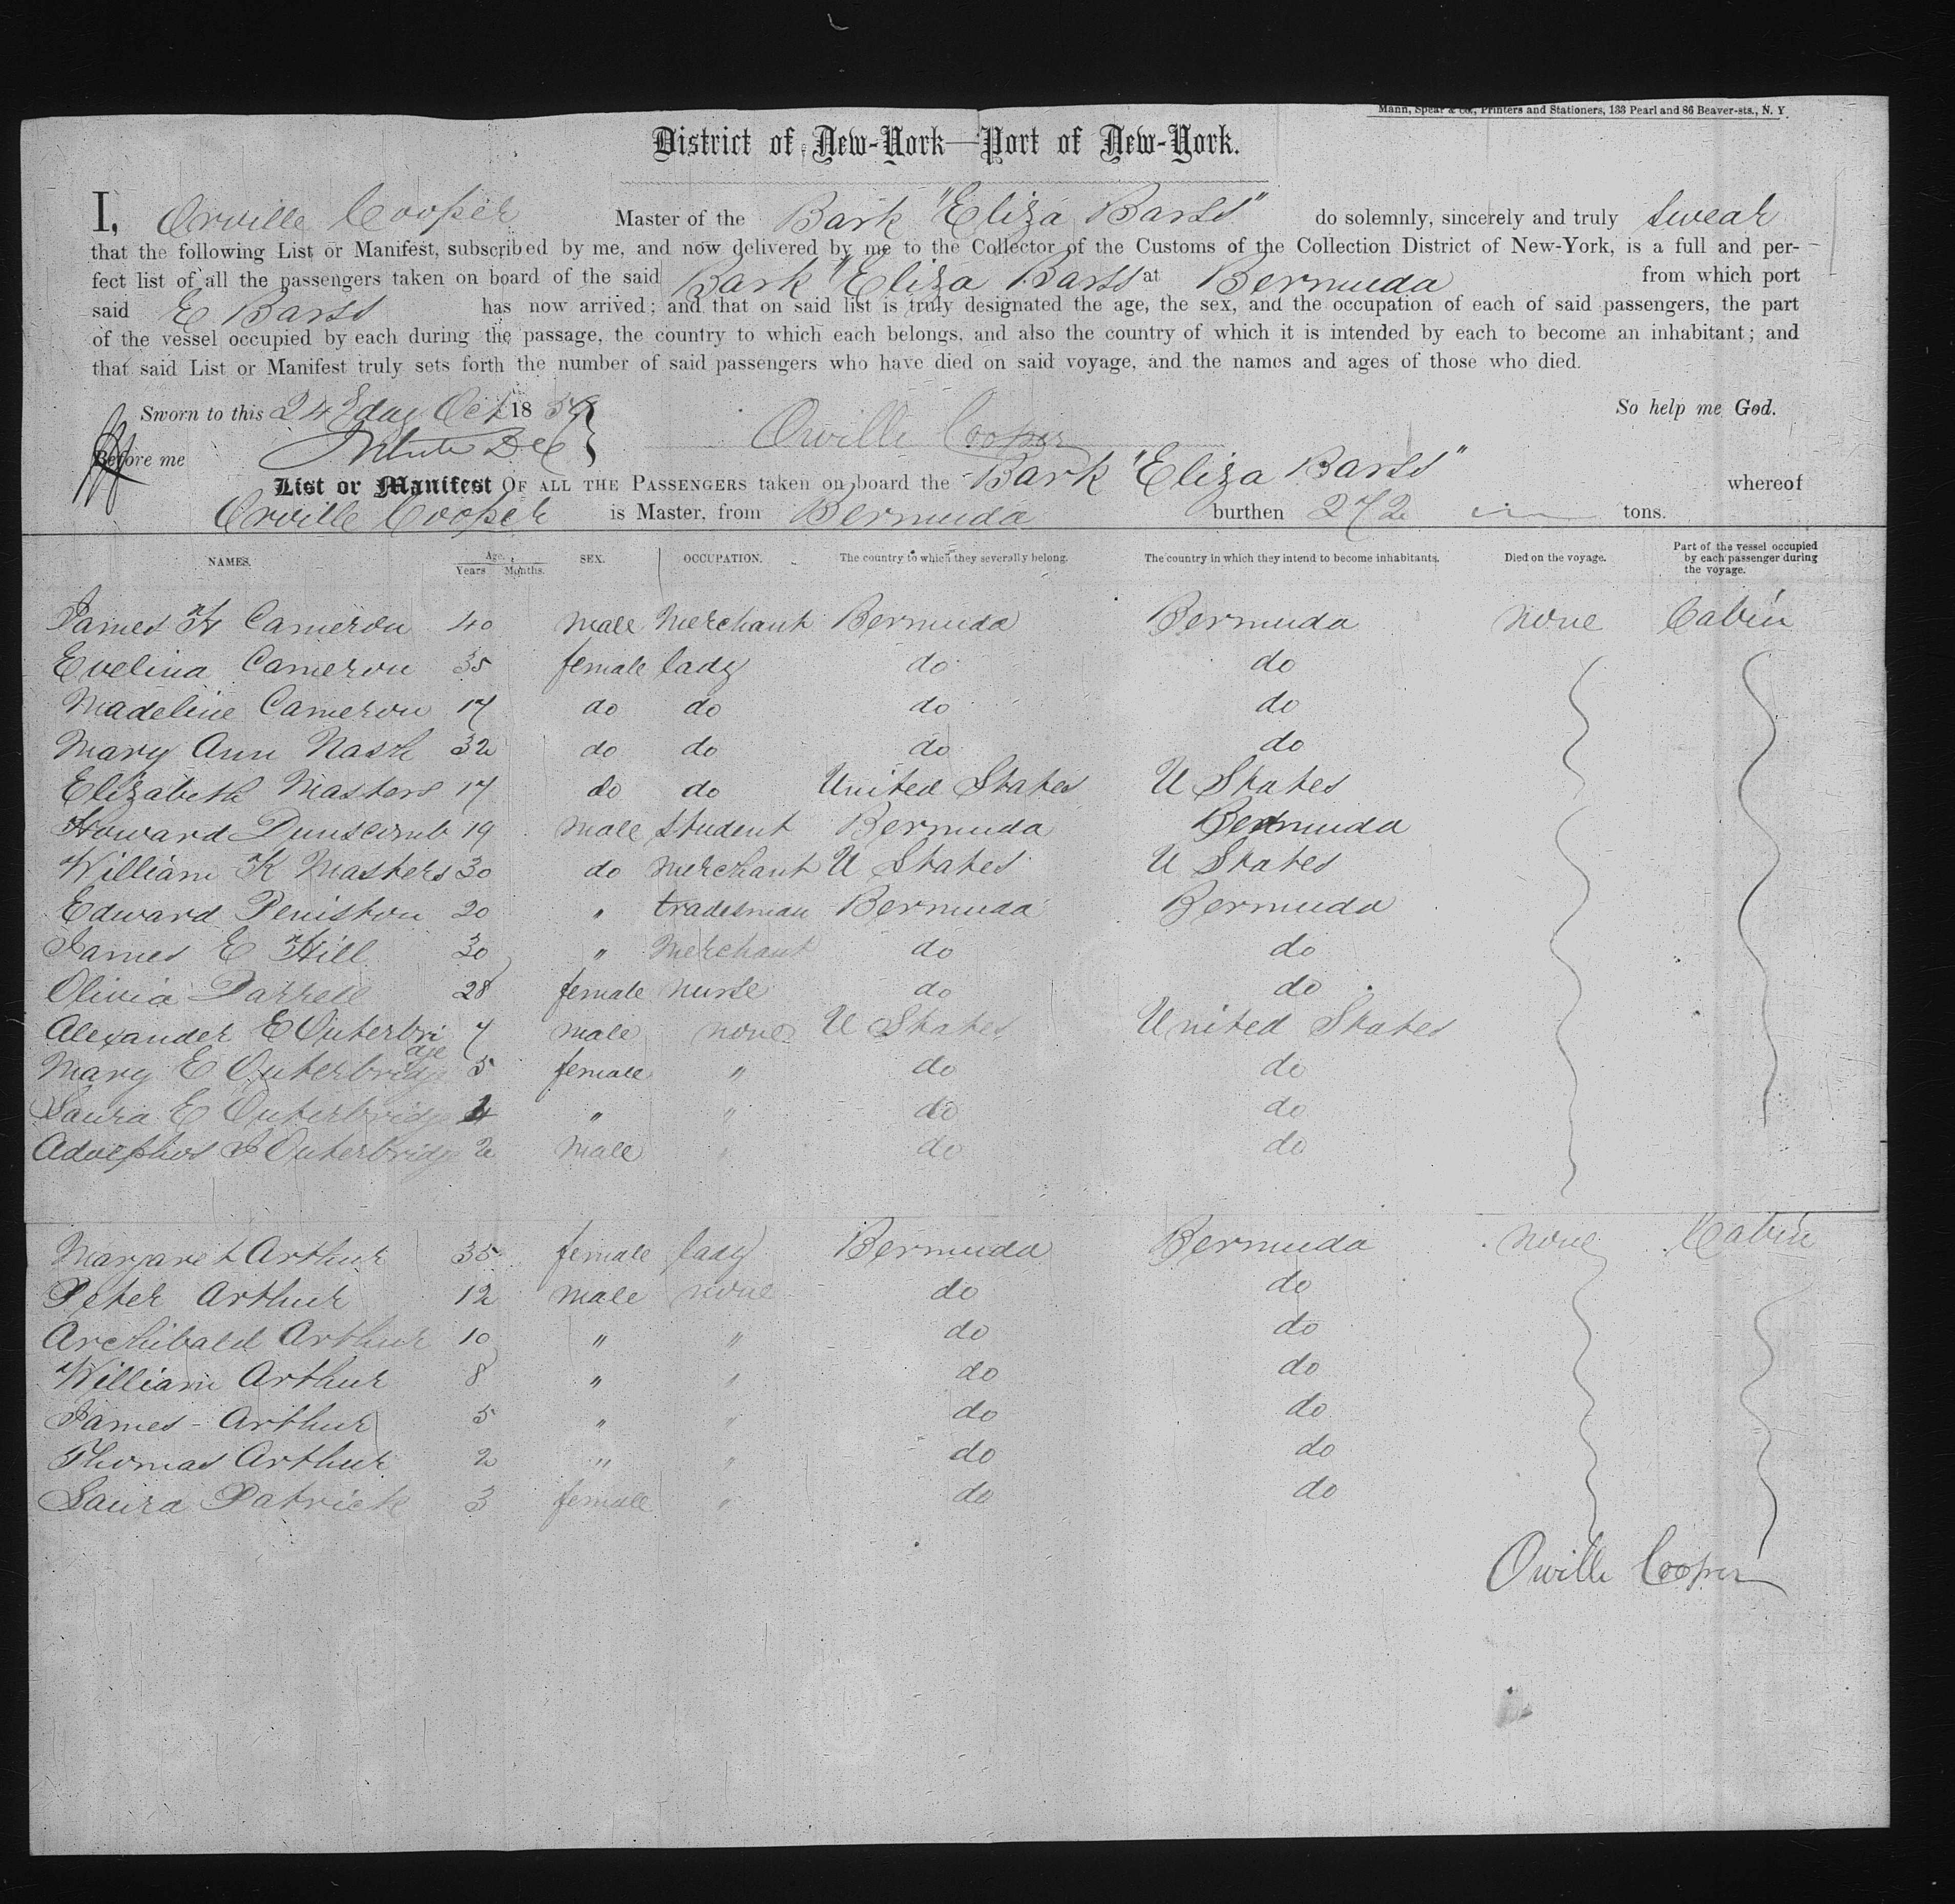 Mann, Spear & Co., Printers and Stationers, 133 Pearl and 86 Beaver-sts., N. Y.
District of New-York—Port of New-York.
I, Orville Cooper Master of the Bark "Eliza Barss" do solemnly, sincerely and truly swear
that the following List or Manifest, subscribed by me, and now delivered by me to the Collector of the Customs of the Collection District of New-York, is a full and per-
fect list of all the passengers taken on board of the said Bark "Eliza Barss at Bermuda from which port
said E Barss has now arrived; and that on said list is truly designated the age, the sex, and the occupation of each of said passengers, the part
of the vessel occupied by each during the passage, the country to which each belongs, and also the country of which it is intended by each to become an inhabitant; and
that said List or Manifest truly sets forth the number of said passengers who have died on said voyage, and the names and ages of those who died.
Sworn to this 24 day Oct 18 So help me God.
Orville Cooper
Before me
List or Manifest OF ALL THE PASSENGERS taken on board the Bark "Eliza Barss" whereof
Orville Cooper is Master, from Bermuda burthen 272 tons.
NAMES. Age. Years Months. SEX. OCCUPATION. The country to which they severally belong. The country in which they intend to become inhabitants. Died on the voyage. Part of the vessel occupied by each passenger during the voyage.
James H Cameron 40 male Merchant Bermuda Bermuda none Cabin
Evelina Cameron 35 female lady do do
Madeline Cameron 17 do do do do
Mary Ann Nash 32 do do do do
Elizabeth Masters 17 do do United States U States
Howard Dunscomb 19 male student Bermuda Bermuda
William K Masters 30 do merchant U States U States
Edward Peniston 20 " tradesman Bermuda Bermuda
James E Hill 30 " Merchant do do
Olivia Darrell 28 female nurse do do
Alexander E Outerbridge 7 male none U States United States
Mary E Outerbridge 5 female " do do
Laura E Outerbridge 4 " " do do
Adolphos J Outerbridge 2 male " do do
Margaret Arthur 35 female lady Bermuda Bermuda none Cabin
Peter Arthur 12 male none do do
Archibald Arthur 10 " " do do
William Arthur 8 " " do do
James Arthur 5 " " do do
Thomas Arthur 2 " " do do
Laura Patrick 3 female " do do
Orville Cooper